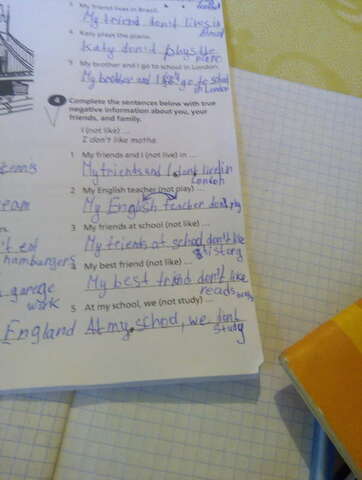 3 My friend lives in Brazil.
My friend don't lives in
Brasil
4 Katy plays the piano.
Katy don't plays the
piano
5 My brother and I go to school in London.
My brother and I go to school
in London
4 Complete the sentences below with true
negative information about you, your
friends, and family.
I (not like) ...
I don't like maths.
1 My friends and I (not live) in ...
My friends and I dont live in
London
2 My English teacher (not play) ...
My English teacher don't play
3 My friends at school (not like) ...
My friends at school don't like
4 My best friend (not like) ...
My best friend don't like
reads
5 At my school, we (not study) ...
At my school, we dont
study
eam
't eat
hamburgers
garage
work
England